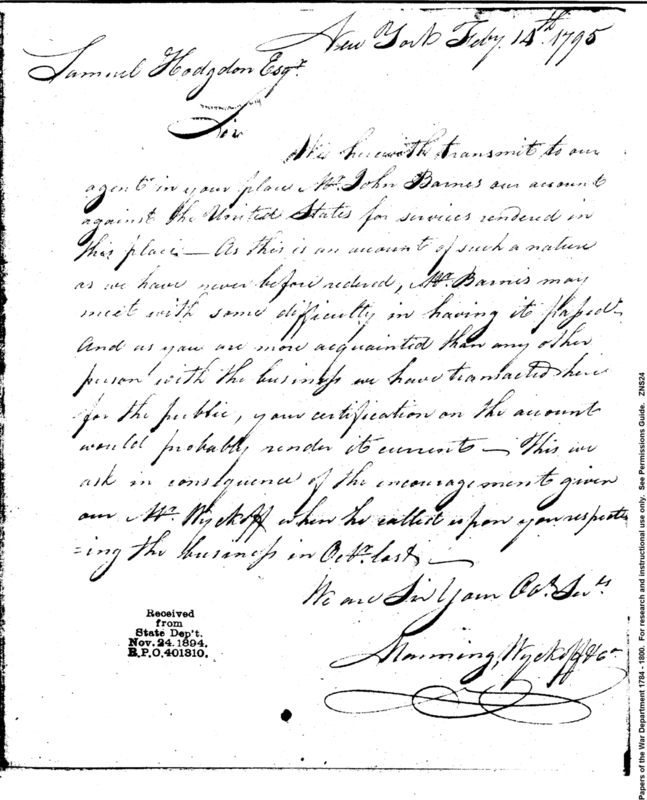 New York Feby. 14th. 1795
Samuel Hodgdon Esqr.
Sir
We herewith transmit to our
agent in your place Mr. John Barnes our account
against the United States for services rendered in
this place — As this is an account of such a nature
as we have never before redered, Mr. Barnes may
meet with some difficulty in having it passed
And as you are more acquainted than any other
person with the business we have transacted here
for the public, your certification on the account
would probably render it current — This we
ask in consequence of the encouragement given
our Mr. Wyckoff when he called upon you respect
=ing the business in Octr. last —
We are Sir Your Ob. Servts
Manning, Wyckoff & Co
Received
from
State Dep't.
Nov. 24. 1894.
R.P.O. 401310.
Papers of the War Department 1784 - 1800. For research and instructional use only. See Permissions Guide. ZNS24